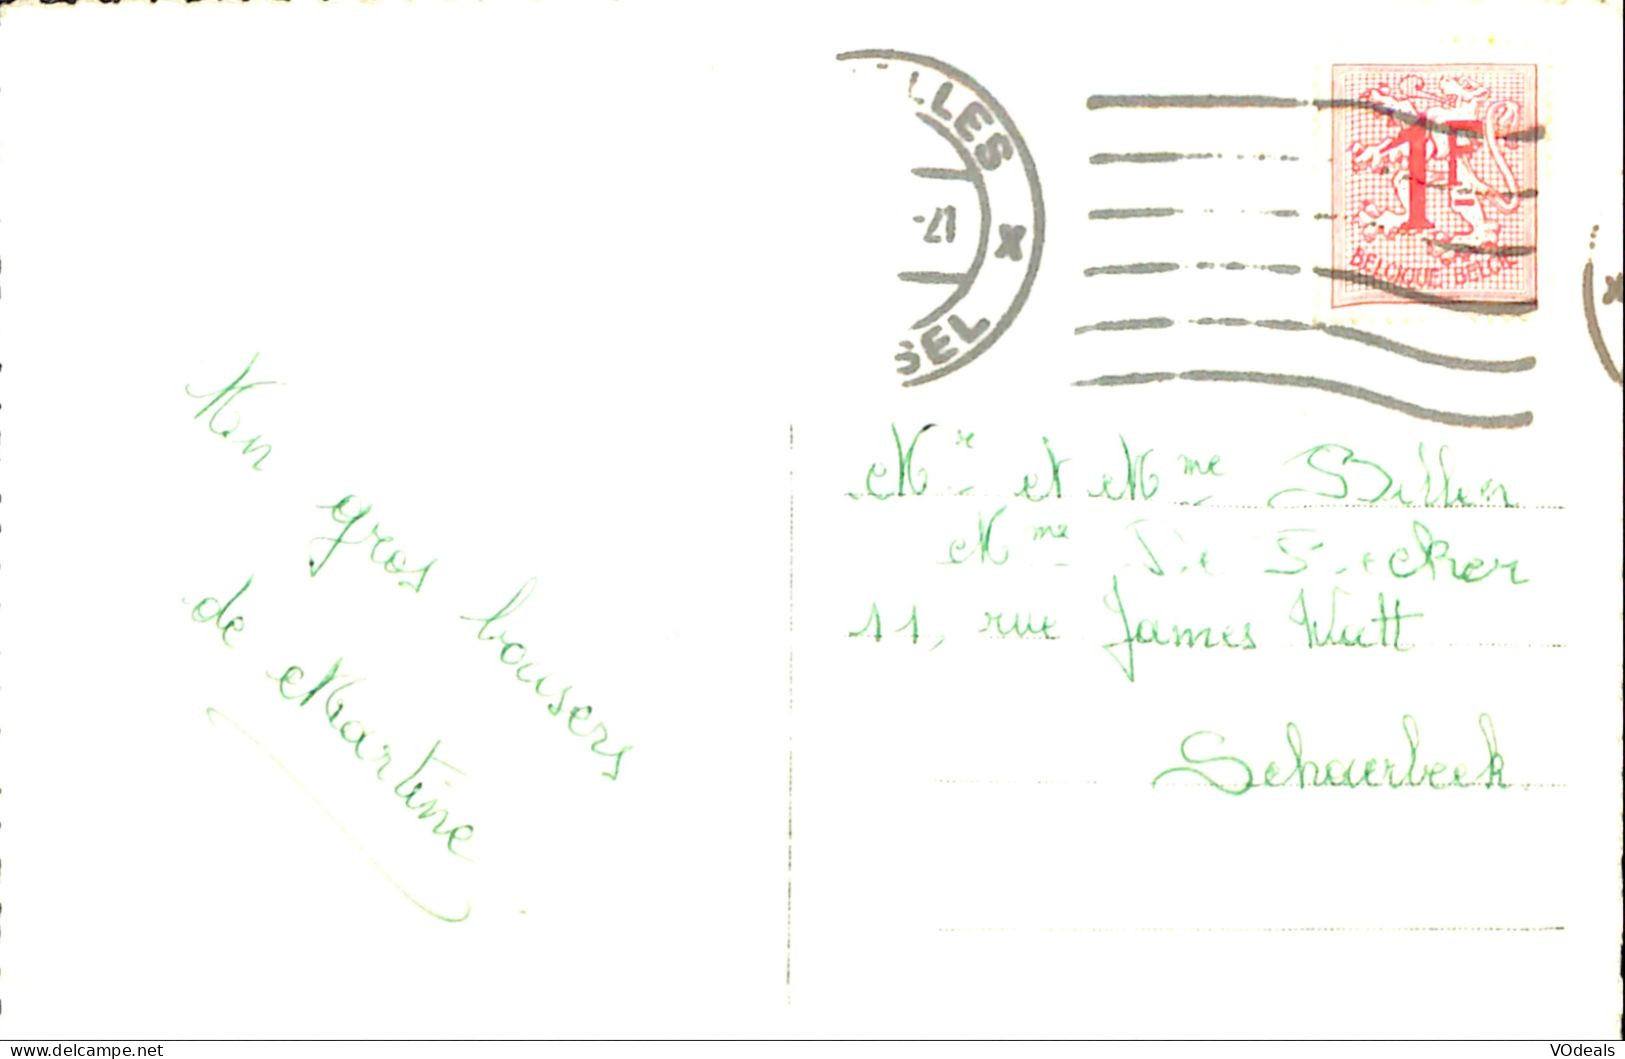 LLES
-21
x
SEL
1F
BELGIQUE BELGIE
x
Mr et Mme Billen
Mme De
11, rue James Watt
Schaerbeek
gros baisers
de Martine
www.delcampe.net
VOdeals